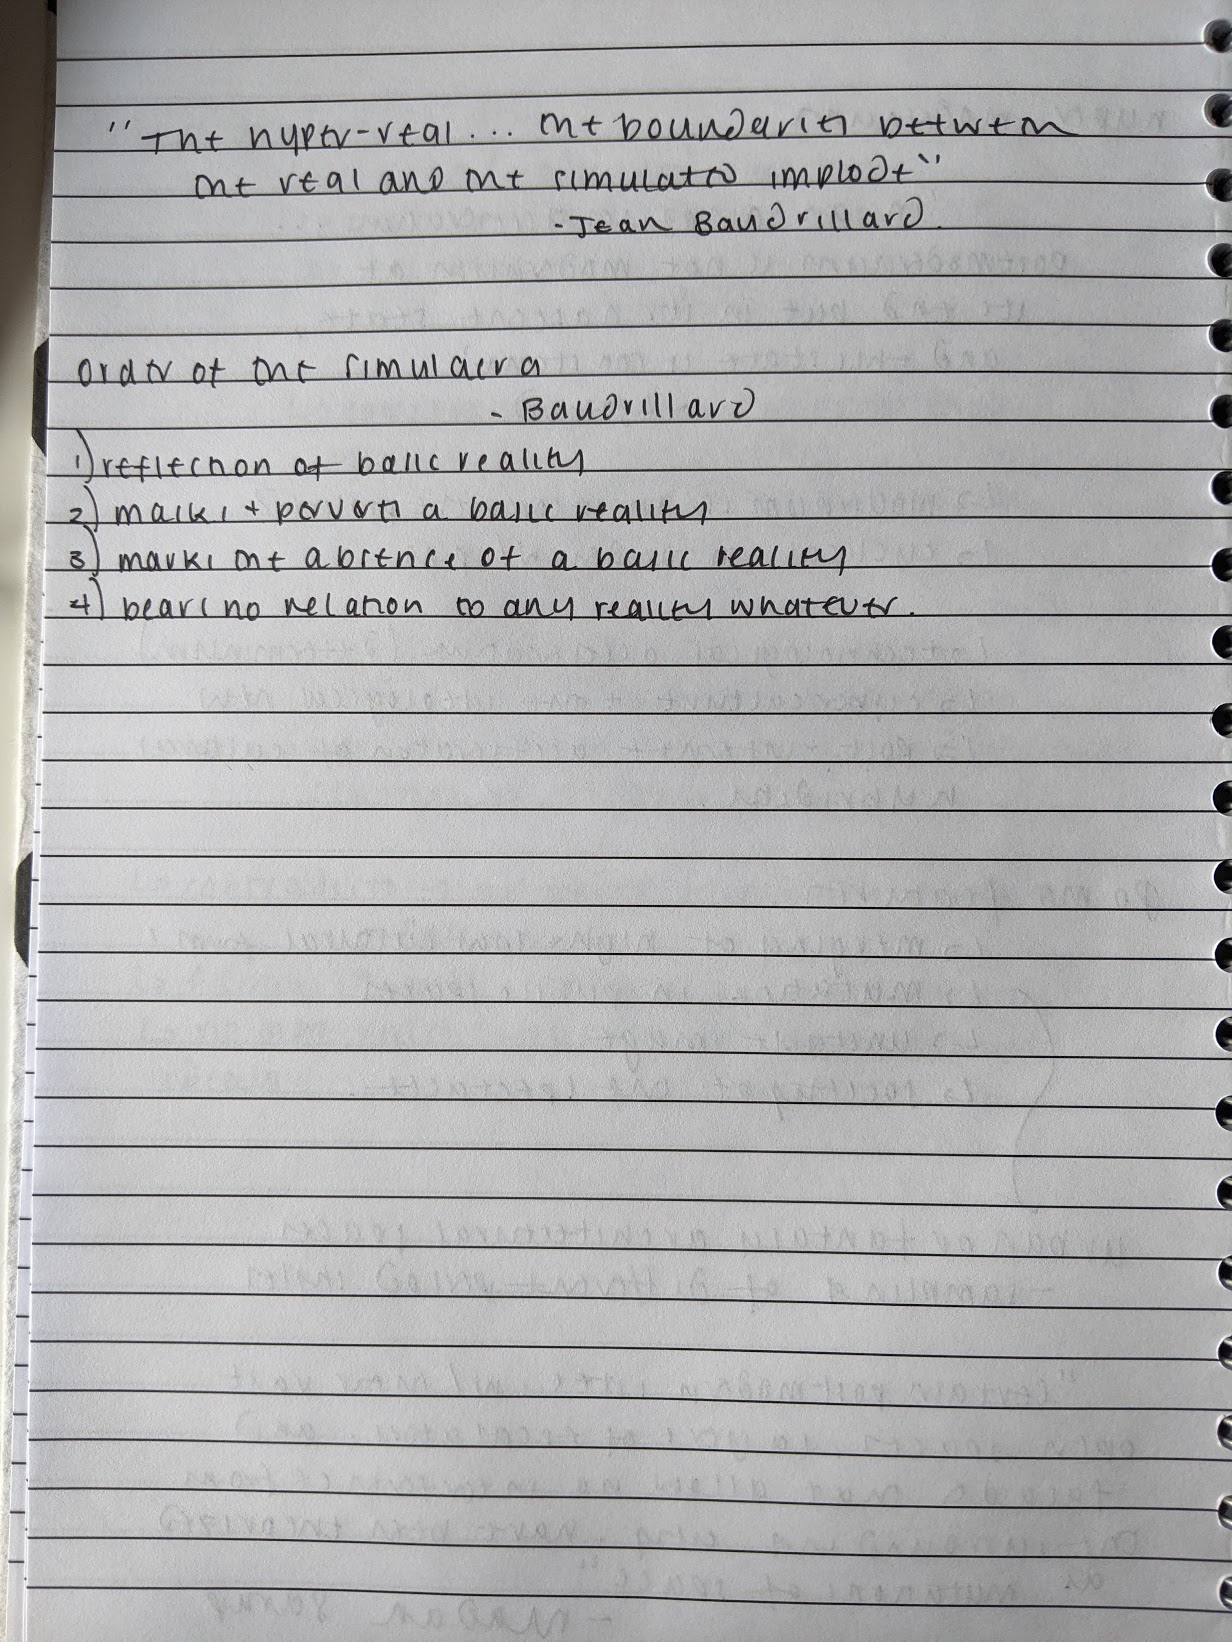 "The hyper-real... the boundaries between
the real and the simulated implode"
- Jean Baudrillard.
Order of the simulacra
- Baudrillard
1) reflection of basic reality
2) masks + perverts a basic reality
3) marks the absence of a basic reality
4) bears no relation to any reality whatever.